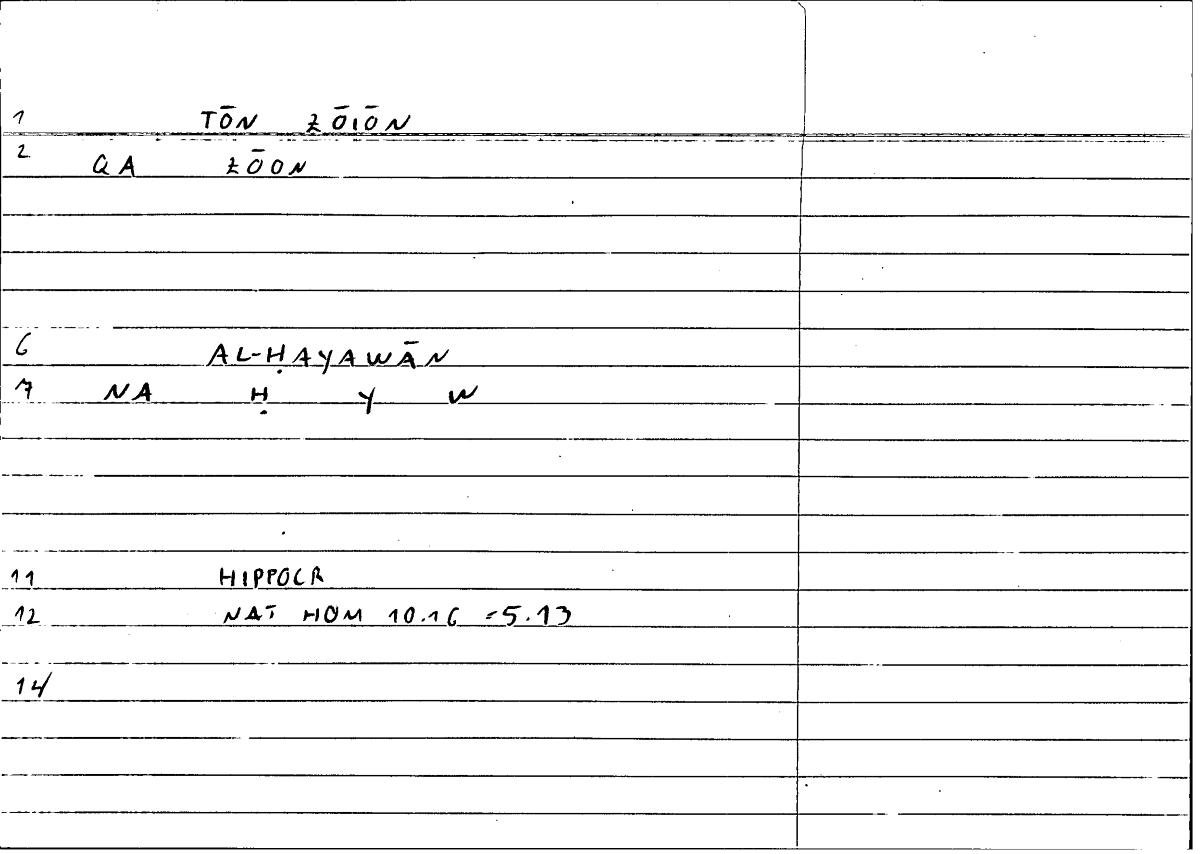 1 TŌN ZŌIŌN
2 QA ZŌON
6 AL-ḤAYAWĀN
7 NA Ḥ Y W
11 HIPPOCR
12 NAT HOM 10.16 =5.13
14